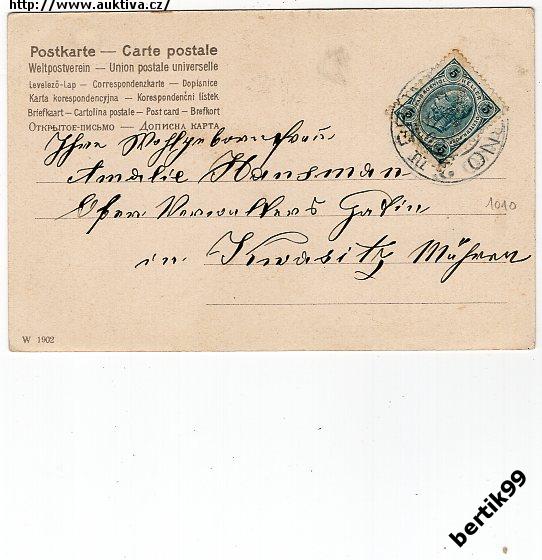 http://www.auktiva.cz/
Postkarte — Carte postale
Weltpostverein — Union postale universelle
Levelező-Lap — Correspondenzkarte — Dopisnice
Karta korespondencyjna — Korespondenční lístek
Briefkaart — Cartolina postale — Post card — Brefkort
Открытое-письмо — Дописна карта
5 5 5 5
Ihre Wohlgeboren Frau
Amalie Hansman
Ober Verwalters Gatin
in Kwasitz Mähren
1010
W 1902
bertik99